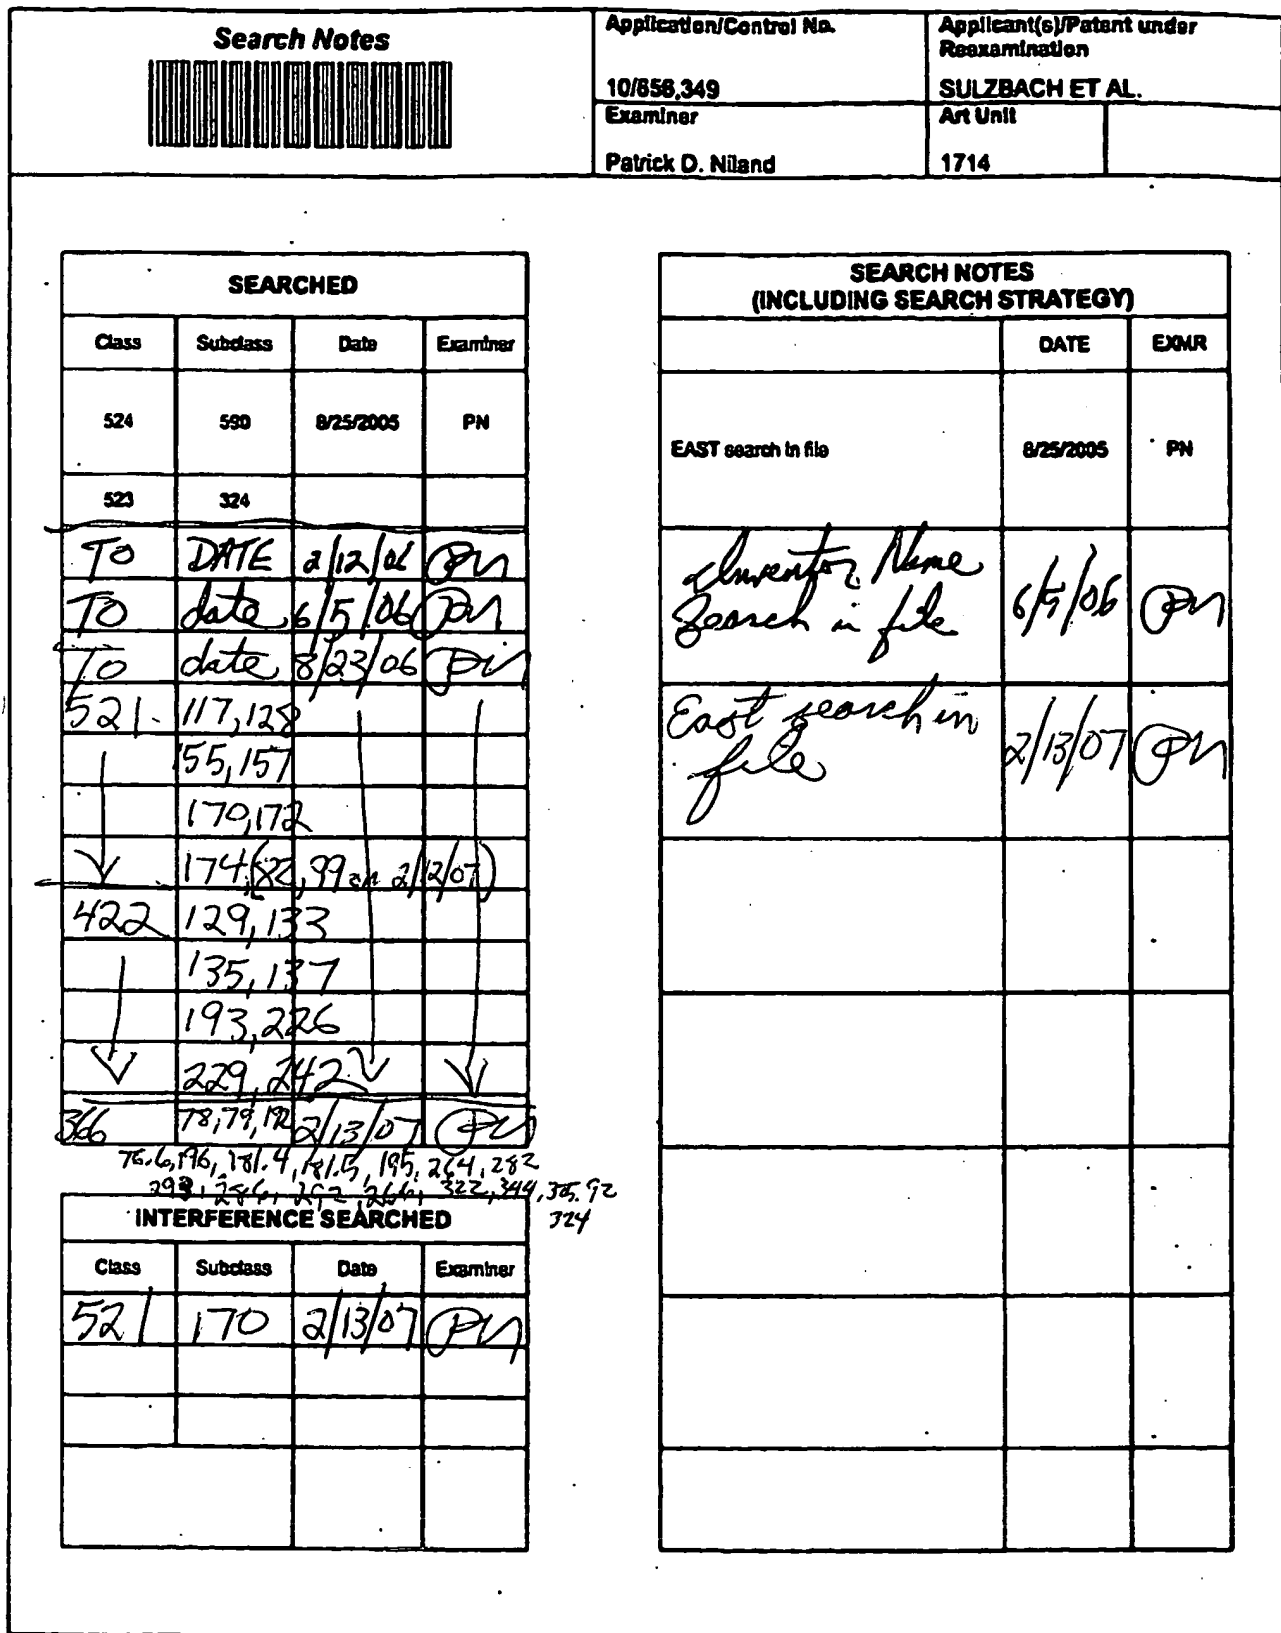 Search Notes
Application/Control No.
10/656,349
Applicant(s)/Patent under
Reexamination
SULZBACH ET AL.
Examiner
Patrick D. Niland
Art Unit
1714
SEARCHED
Class Subclass Date Examiner
524 590 8/25/2005 PN
523 324
TO DATE 2/12/06 PN
TO date 6/5/06 PN
TO date 8/23/06 PN
521 117,128
155,157
170,172
174,(82,99 on 2/12/07)
422 129,133
135,137
193,226
229,242
366 78,79,192 2/13/07 PN
76.6,196,181.4,181.5,195,264,282
322,344,
324
INTERFERENCE SEARCHED
Class Subclass Date Examiner
521 170 2/13/07 PN
SEARCH NOTES
(INCLUDING SEARCH STRATEGY)
DATE EXMR
EAST search in file 8/25/2005 PN
Inventor Name
Search in file 6/5/06 PN
East search in
file 2/13/07 PN